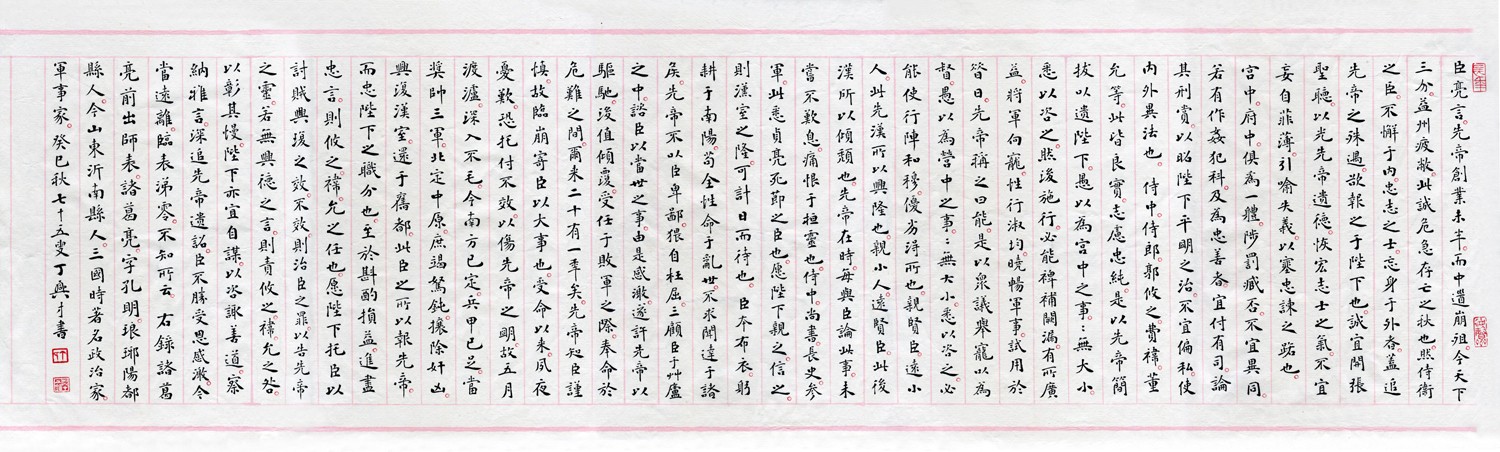 臣亮言。先帝創業未半。而中道崩殂。今天下
三分。益州疲敝。此誠危急存亡之秋也。然侍衛
之臣不懈于內。忠志之士忘身于外者。蓋追
先帝之殊遇。欲報之于陛下也。誠宜開張
聖聽。以光先帝遺德。恢宏志士之氣。不宜
妄自菲薄。引喻失義。以塞忠諫之路也。
宮中府中。俱為一體。陟罰臧否。不宜異同。
若有作姦犯科。及為忠善者。宜付有司。論
其刑賞。以昭陛下平明之治。不宜偏私。使
內外異法也。侍中侍郎郭攸之費禕董
允等。此皆良實。志慮忠純。是以先帝簡
拔以遺陛下。愚以為宮中之事。事無大小
悉以咨之。然後施行。必能裨補闕漏。有所廣
益。將軍向寵。性行淑均。曉暢軍事。試用於
昔日。先帝稱之曰能。是以衆議舉寵以為
督。愚以為營中之事。事無大小。悉以咨之。必
能使行陣和穆。優劣得所也。親賢臣。遠小
人。此先漢所以興隆也。親小人。遠賢臣。此後
漢所以傾頹也。先帝在時。每與臣論此事。未
嘗不歎息痛恨于桓靈也。侍中。尚書。長史。參
軍。此悉貞亮死節之臣也。愿陛下親之信之。
則漢室之隆。可計日而待也。臣本布衣。躬
耕于南陽。苟全性命于亂世。不求聞達于諸
侯。先帝不以臣卑鄙。猥自枉屈。三顧臣于艸廬
之中。諮臣以當世之事。由是感激。遂許先帝以
驅馳。後值傾覆。受任于敗軍之際。奉命於
危難之間。爾來二十有一年矣。先帝知臣謹
慎。故臨崩寄臣以大事也。受命以來。夙夜
憂歎。恐托付不效。以傷先帝之明。故五月
渡瀘。深入不毛。今南方已定。兵甲已足。當
獎帥三軍。北定中原。庶竭駑鈍。攘除奸凶。
興復漢室。還于舊都。此臣之所以報先帝。
而忠陛下之職分也。至於斟酌損益。進盡
忠言。則攸之。禕。允之任也。愿陛下托臣以
討賊興復之效。不效。則治臣之罪。以告先帝
之靈。若無興德之言。則責攸之。禕。允之咎。
以彰其慢。陛下亦宜自謀。以咨諏善道。察
納雅言。深追先帝遺詔。臣不勝受恩感激。今
當遠離。臨表涕零。不知所云。右錄諸葛
亮前出師表。諸葛亮。字孔明。琅琊陽都
縣人。今山東沂南縣人。三國時著名政治家
軍事家。癸巳秋七十五叟丁興才書